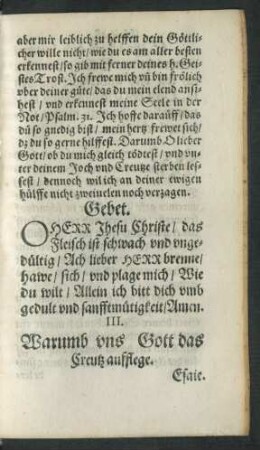 aber mir leiblich zu helffen dein Göttli-
cher wille nicht/ wie du es am aller besten
erkennest/ so gib mit ferner deines h. Gei-
stes Trost. Ich frewe mich vñ bin frölich
vber deiner güte/ das du mein elend ansi-
hest/ vnd erkennest meine Seele in der
Not/ Psalm. 31. Ich hoffe darauff/ das
dũ so gnedig bist/ mein hertz frewet sich/
dz du so gerne hilffest. Darumb O lieber
Gott/ ob du mich gleich tödtest/ vnd vn-
ter deinem Joch vnd Creutze sterben les-
sest/ dennoch wil ich an deiner ewigen
hülffe nicht zweiuelen noch verzagen.
Gebet.
O HERR Jhesu Christe/ das
Fleisch ist schwach vnd vnge-
dültig/ Ach lieber HERR brenne/
hawe/ stich/ vnd plage mich/ Wie
du wilt/ Allein ich bitt dich vmb
gedult vnd sanfftmütigkeit/ Amen.
III.
Warumb vns Gott das
Creutz aufflege.
Esaie.